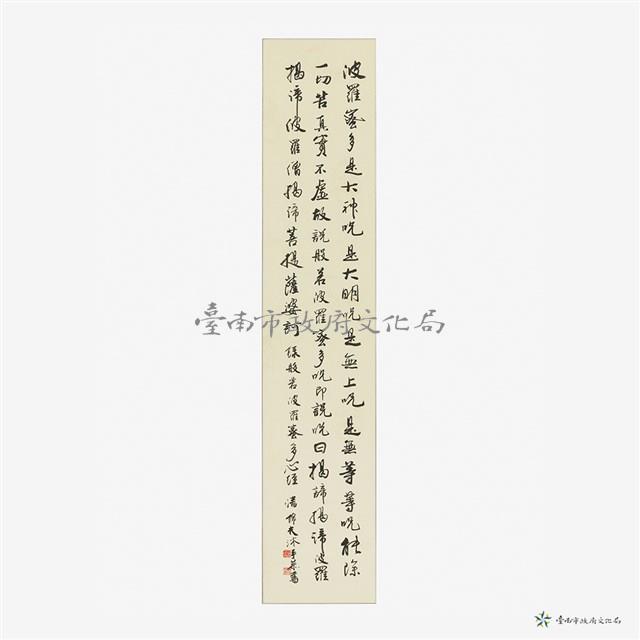 波羅蜜多是大神咒是大明咒是無上咒是無等等咒能除
一切苦真實不虛故說般若波羅蜜多咒即說咒曰揭諦揭諦波羅
揭諦波羅僧揭諦菩提薩婆訶 錄般若波羅蜜多心經
臺南市政府文化局
臺南市政府文化局